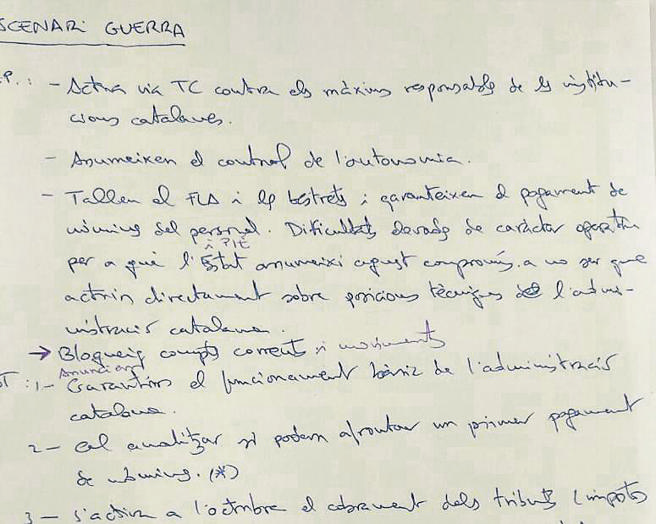 SCENARI GUERRA
P.: - Activa via TC contra els màxims responsables de les institu-
cions catalanes.
- Assumeixen el control de l'autonomia.
- Tallen el FLA i les bestretes i garanteixen el pagament de
nòmines del personal. Dificultats de caràcter operatiu
i PIE
per a què l'Estat assumeixi aquest compromís, a no ser que
actuin directament sobre posicions tècniques de l'admi-
nistració catalana.
→ Bloqueig comptes corrents i moviments
Anunciar
T: 1- Garantim el funcionament bàsic de l'administració
catalana.
2- Cal analitzar si podem afrontar un primer pagament
de nòmines. (*)
3- S'activa a l'octubre el cobrament dels tributs (impostos